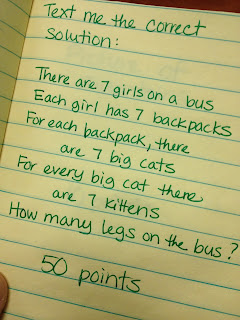 Text me the correct
Solution:
There are 7 girls on a bus
Each girl has 7 backpacks
For each backpack, there
are 7 big cats
For every big cat there
are 7 kittens
How many legs on the bus?
50 points